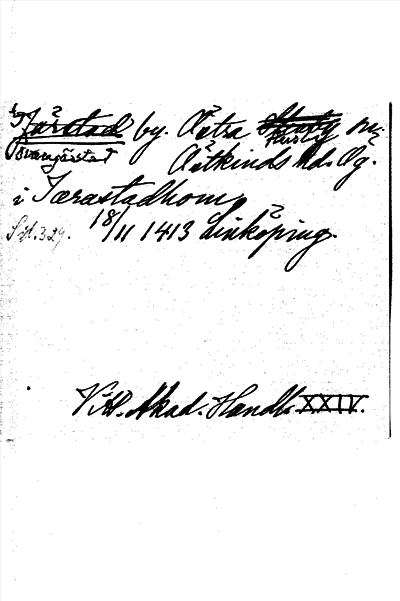 Järstad by. Östra Husby sn.
Svangärstad Östkinds hd. Ög.
i Jærastadhom
Sid. 329. 18/11 1413 Linköping.
Vitt. Akad. Handl. XXIV.